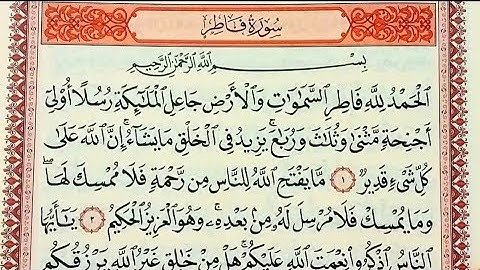 سُورَةُ فَاطِرٍ
بِسْمِ ٱللَّهِ ٱلرَّحْمَٰنِ ٱلرَّحِيمِ
ٱلْحَمْدُ لِلَّهِ فَاطِرِ ٱلسَّمَٰوَٰتِ وَٱلْأَرْضِ جَاعِلِ ٱلْمَلَٰٓئِكَةِ رُسُلًا أُو۟لِىٓ
أَجْنِحَةٍ مَّثْنَىٰ وَثُلَٰثَ وَرُبَٰعَ ۚ يَزِيدُ فِى ٱلْخَلْقِ مَا يَشَآءُ ۚ إِنَّ ٱللَّهَ عَلَىٰ
كُلِّ شَىْءٍ قَدِيرٌ ١ مَّا يَفْتَحِ ٱللَّهُ لِلنَّاسِ مِن رَّحْمَةٍ فَلَا مُمْسِكَ لَهَا ۖ
وَمَا يُمْسِكْ فَلَا مُرْسِلَ لَهُۥ مِنۢ بَعْدِهِۦ ۚ وَهُوَ ٱلْعَزِيزُ ٱلْحَكِيمُ ٢ يَٰٓأَيُّهَا
ٱلنَّاسُ ٱذْكُرُوا۟ نِعْمَتَ ٱللَّهِ عَلَيْكُمْ ۚ هَلْ مِنْ خَٰلِقٍ غَيْرُ ٱللَّهِ يَرْزُقُكُم